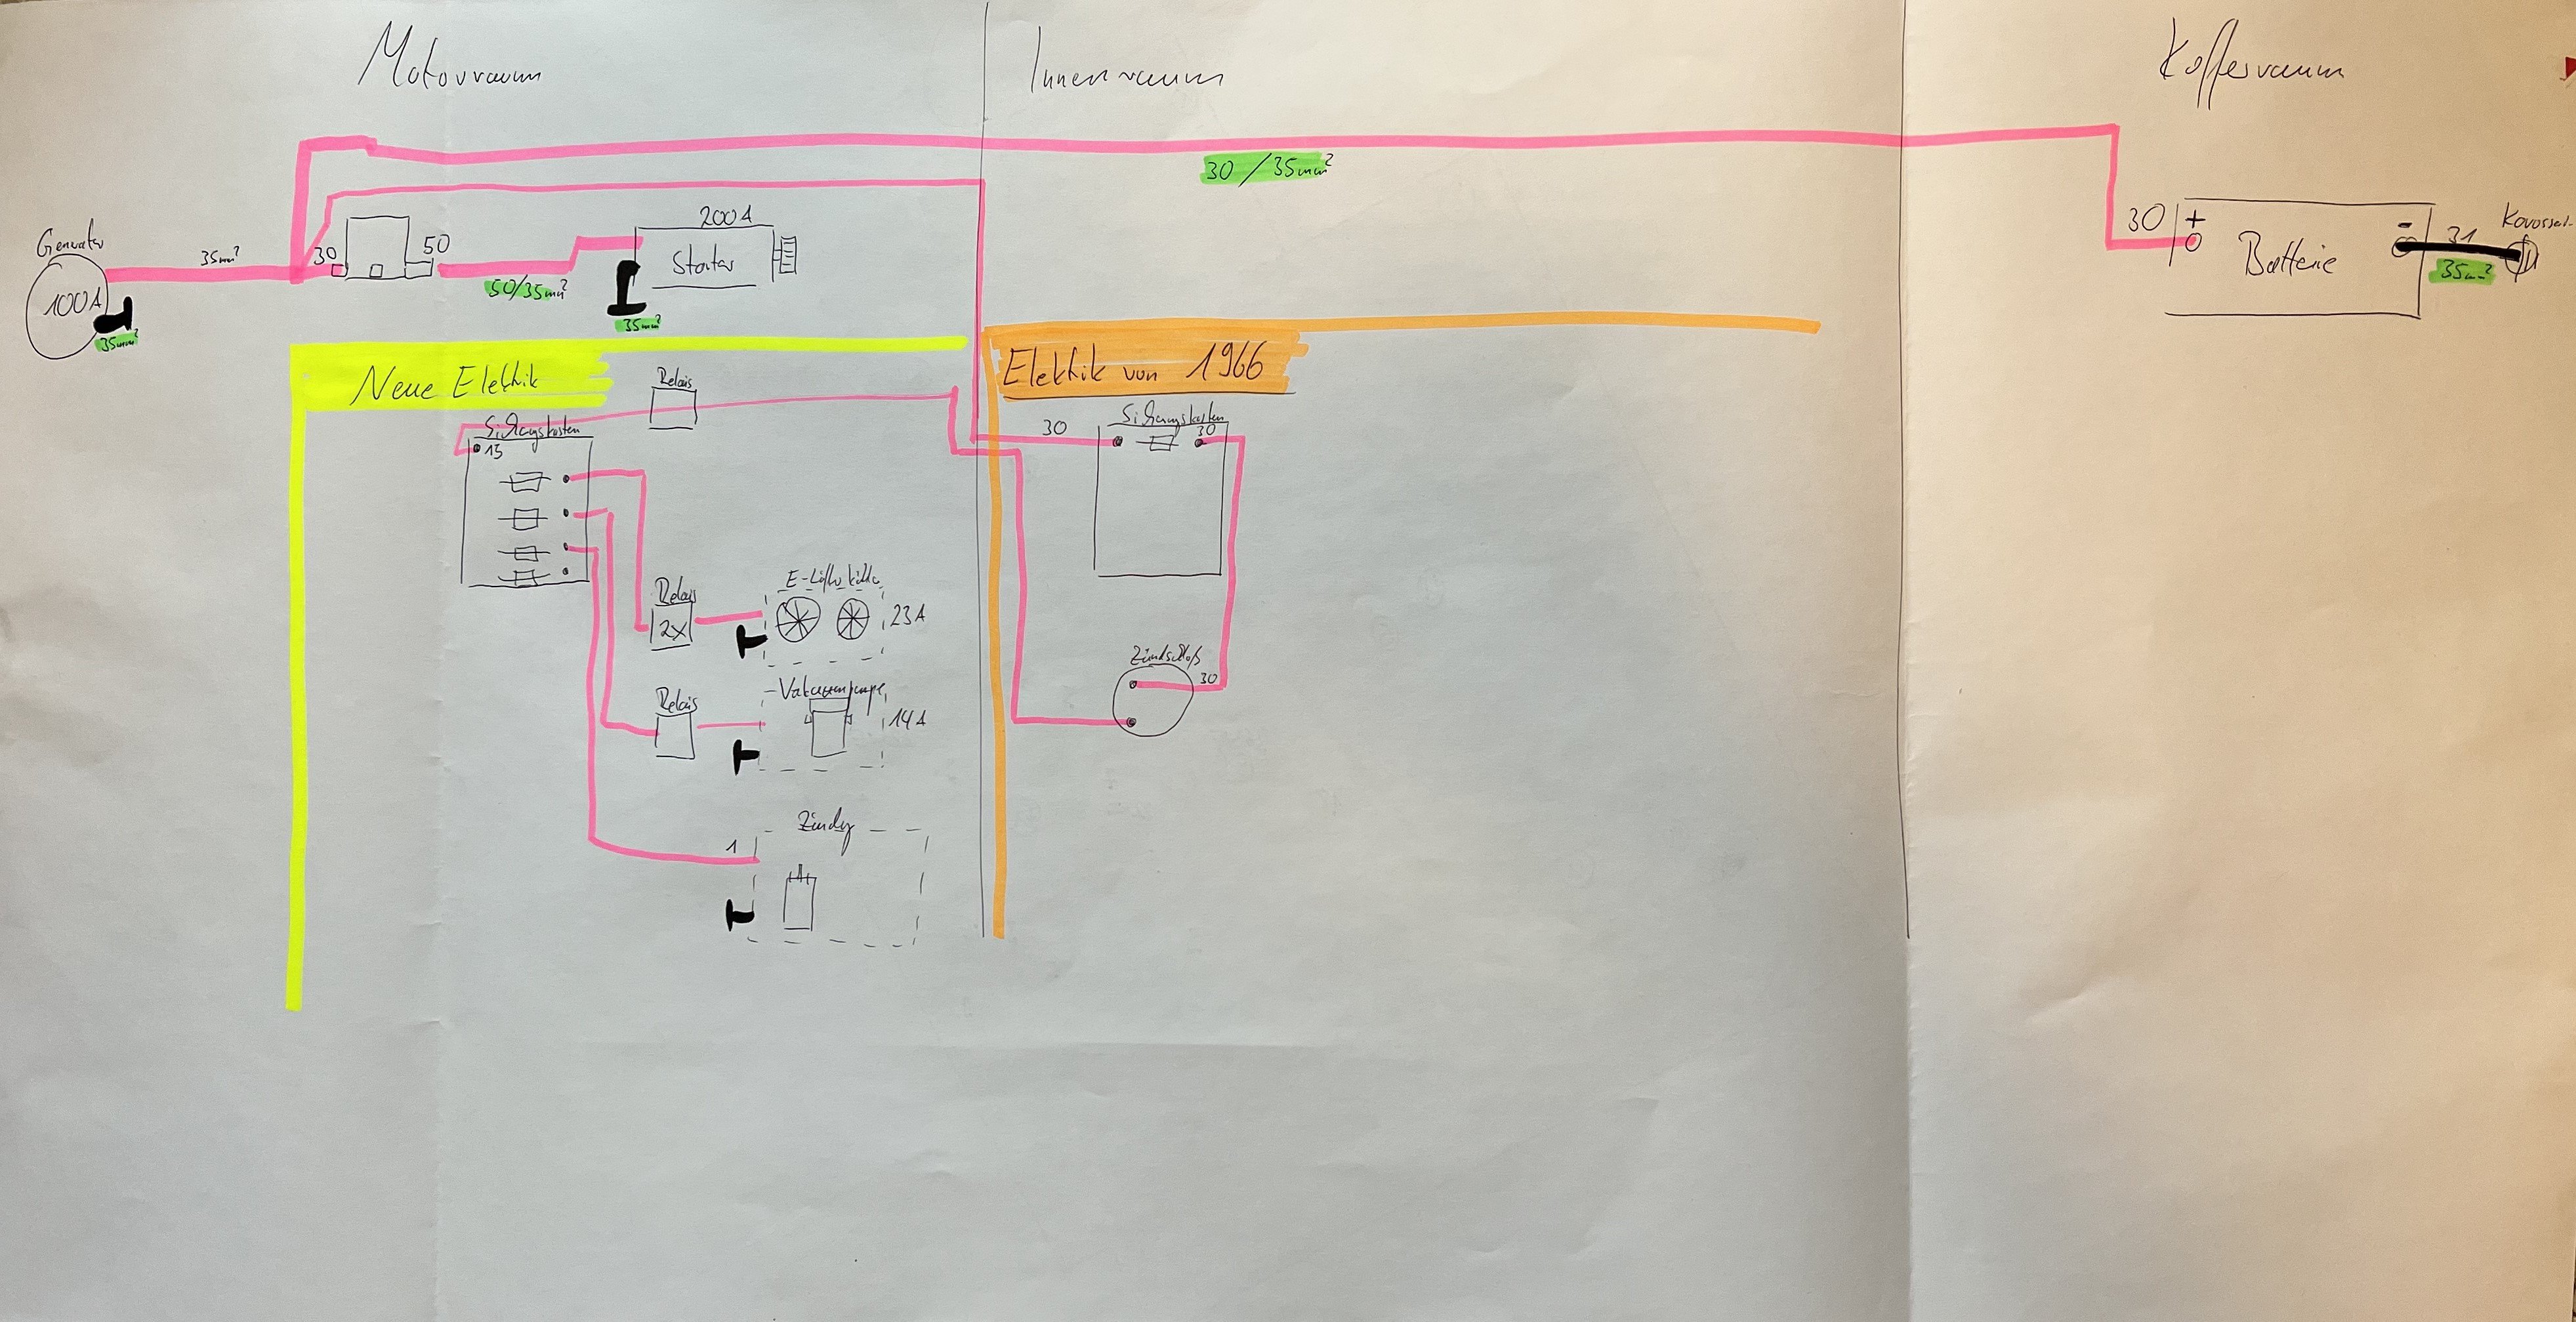 Motorraum
Innenraum
Kofferraum
30 / 35mm²
Generator
100A
35mm²
35mm²
30
50
50/35mm²
200A
Starter
35mm²
30
+
-
Batterie
31
35mm²
Karosserie
Neue Elektrik
Relais
Sicherungskasten
15
Relais
2x
E-Lüfter
23A
Relais
Vakuumpumpe
14A
Zündg
1
Elektrik von 1966
30
Sicherungskasten
30
Zündschloß
30